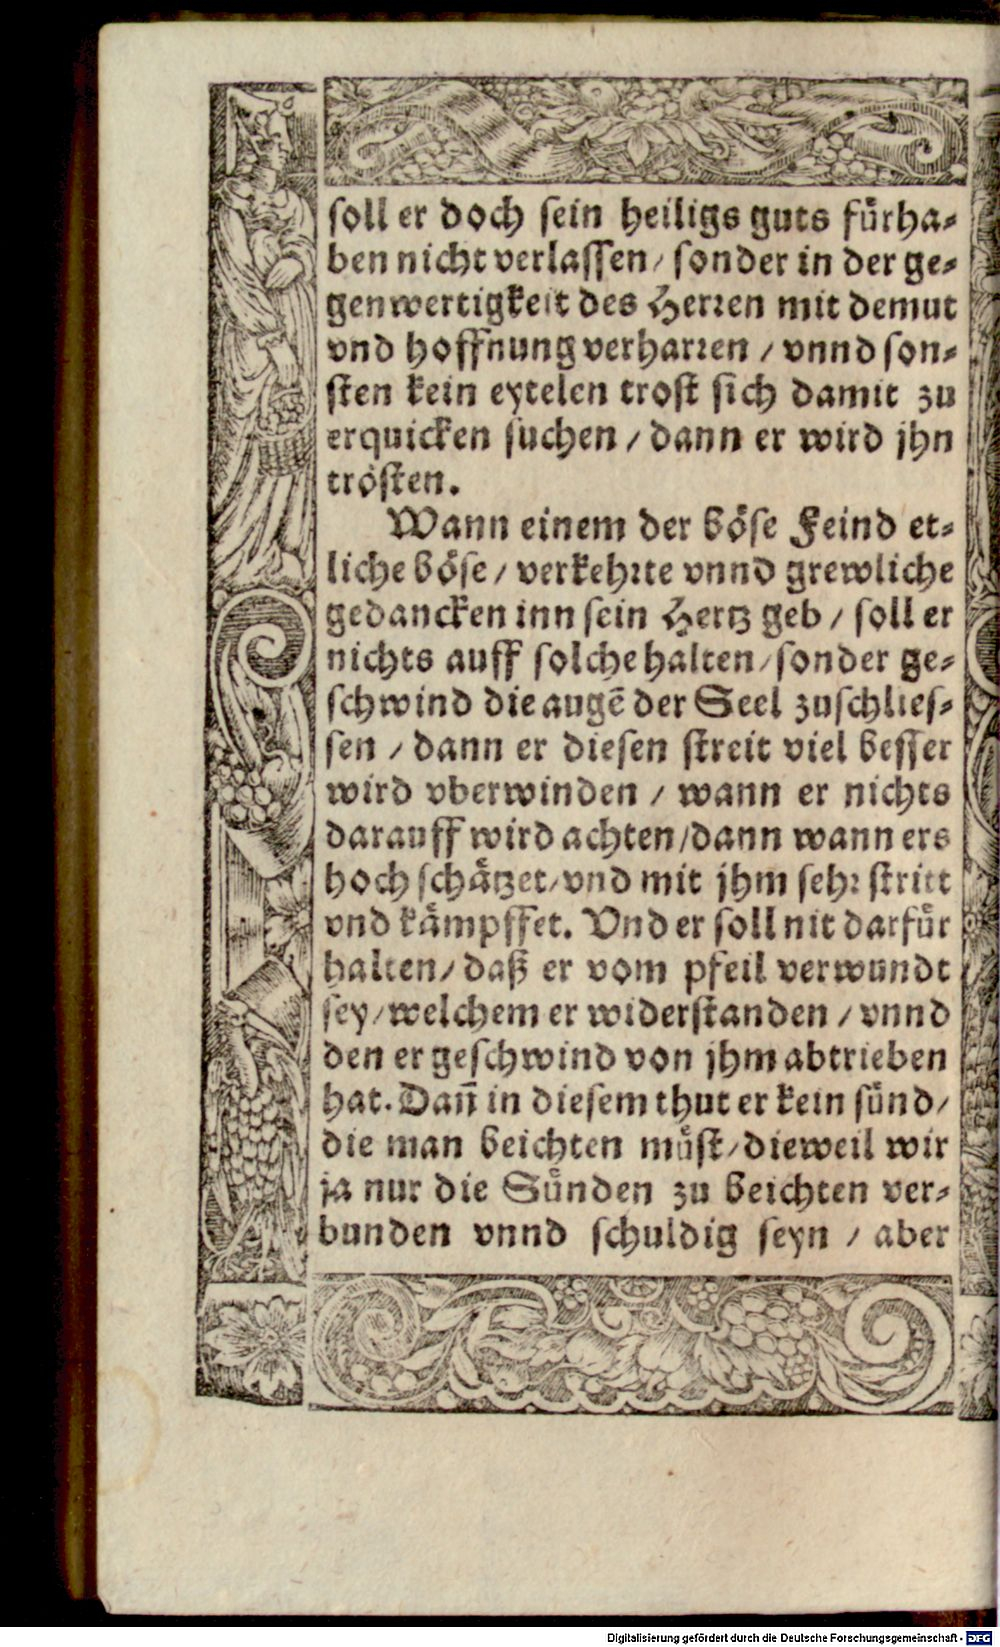 soll er doch sein heiligs guts fürha⸗
ben nicht verlassen / sonder in der ge⸗
genwertigkeit des Herren mit demut
vnd hoffnung verharren / vnnd son⸗
sten kein eytelen trost sich damit zu
erquicken suchen / dann er wird jhn
trösten.
Wann einem der böse Feind et⸗
liche böse / verkehrte vnnd grewliche
gedancken inn sein Hertz geb / soll er
nichts auff solche halten / sonder ge⸗
schwind die augẽ der Seel zuschlies⸗
sen / dann er diesen streit viel besser
wird vberwinden / wann er nichts
darauff wird achten / dann wann ers
hoch schätzet / vnd mit jhm sehr stritt
vnd kämpffet. Vnd er soll nit darfür
halten / daß er vom pfeil verwundt
sey / welchem er widerstanden / vnnd
den er geschwind von jhm abtrieben
hat. Dañ in diesem thut er kein sünd /
die man beichten müst / dieweil wir
ja nur die Sünden zu beichten ver⸗
bunden vnnd schuldig seyn / aber
Digitalisierung gefördert durch die Deutsche Forschungsgemeinschaft - DFG